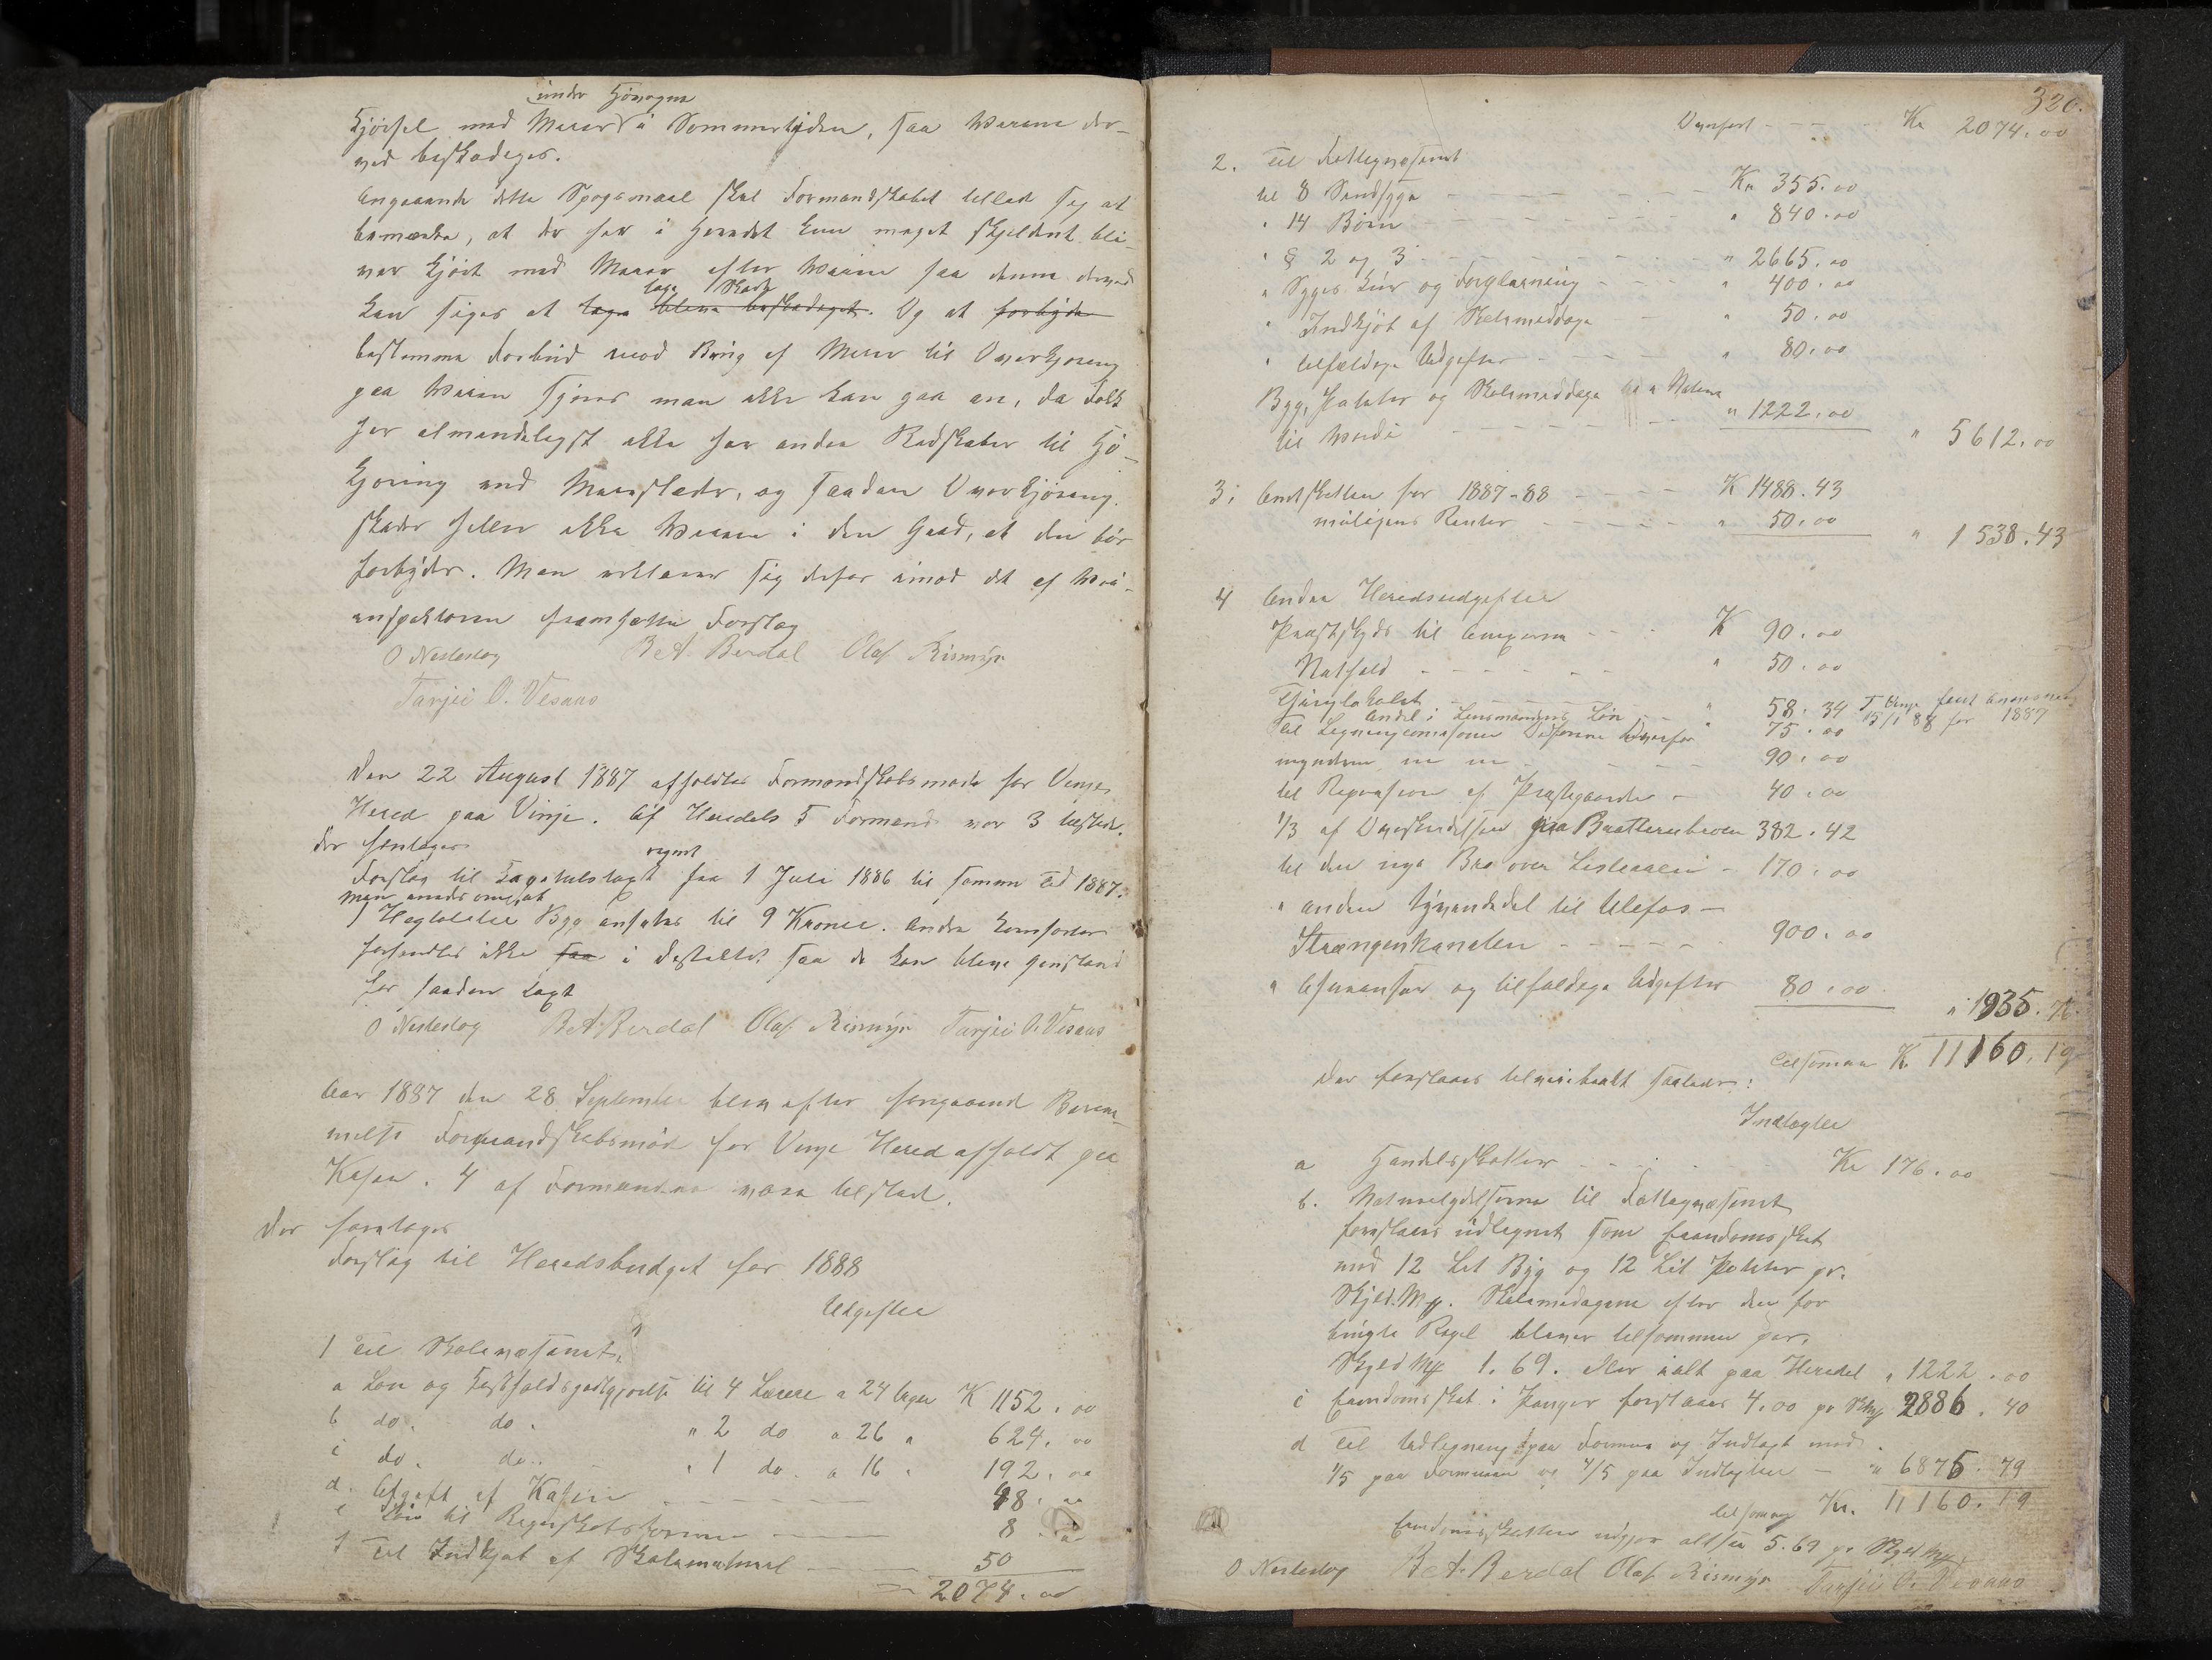 under Hjøvogne
Kjørsel med Meier i Sommertiden, saa Veiene der-
ved beskadiges.
Angaaende dette Spørgsmaal skal Formandskabet tillade sig at
bemærke, at der her i Heredet kun meget skjeldent bli-
ver kjørt med Meier efter Veiene saa denne derved
tage Skade
kan siges at tage blive beskadiget. Og at forbyde
bestemme Forbud mod Brug af Meier til Overkjøring
paa Veien synes man ikke kan gaa an, da Folk
her almindeligst ikke har andre Redskaber til Hø-
kjøring end Meieslæder, og saadan Overkjøring
skader heller ikke Veiene i den Grad, at den bør
forbydes. Man erklærer sig derfor imod det af Vei-
inspektøren fremsatte Forslag
O Nesteslog BeA. Berdal Olaf Bismyr
Tarjei O. Vesaas
Den 22 August 1887 afholdtes Formandskabsmøde for Vinje
Hered paa Vinje. Af Heredets 5 Formænd var 3 tilstede.
Der foretoges
Forslag til Kapiteltaxt fra 1 Juli 1886 til samme Tid 1887.
man enedes om at
1 Hectoliter Byg ansættes til 9 Kroner. Andre Kornsorter
forhandles ikke saa i Distriktet saa de kan blive Gjenstand
for saadan Taxt
O Nesteslog BeA. Berdal Olaf Bismyr Tarjei O. Vesaas
Aar 1887 den 28 September blev efter foregaaende Beram-
melse Formandskabsmøde for Vinje Hered afholdt paa
Kasin. 4 af Formændene vare tilstede.
Der foretoges
Forslag til Heredsbudget for 1888
Udgifter
1 Til Skolevæsenet
a Løn og Kostholdsgodtgjørelse til 4 Lærere a 24 Uger K 1152.00
b do. do. " 2 do a 26 " 624.00
c do. do. " 1 do. a 16 " 192.00
d. Afgift af Kasin 48.00
e Løn til Regnskabsføreren 8.00
f Til Indkjøb af Skolemateriel 50
2074.00
320.
Overført Kr 2074.00
2. Til Fattigvæsenet
til 8 Sindsyge Kr 355.00
" 14 Børn " 840.00
" § 2 og 3 " 2665.00
" Syges Kur og Forpleining " 400.00
" Indkjøb af Skolemeddage " 50.00
" tilfældige Udgifter " 80.00
Byg, Poteter og Skolemeddage
til Værdi " 1222.00 " 5612.00
3. Amtskatten for 1887-88 K 1488.43
muligens Renter " 50.00 " 1538.43
4 Andre Heredsudgifter
Præstskyds til Annexerne K 90.00
Nathold " 50.00
Thinglokalet " 58.34
Andel i Lensmandens Løn 15/1 88 for 1887
Til Ligningscommissionen 75.00
90.00
til Reparation af Præstegaarden 40.00
1/3 af Overskridelsen paa Brattereibroen 382.42
til den nye Bro over 170.00
" anden tyvendedel til Ulefos-
Strængenkanalen 900.00
" Assurancer og tilfældige Udgifter 80.00 " 1935.76
tilsammen K. 11160.19
Der foreslaaes tilveiebragt saaledes:
Indtægter
a Handelsskatter Kr 176.00
b. Naturalydelserne til Fattigvæsenet
foreslaaes udlignet som Eiendomsskat
med 12 Lit Byg og 12 Lit Poteter pr.
Skyld.M#. Skolemedagene efter den for
brugte Regel bliver tilsammen per.
Skyld M# 1.69. eller ialt paa Heredet " 1222.00
c Eiendomsskat i Penger foreslaaes 4,00 pr Skm# 2886.40
d Til Udligning paa Formue og Indtægt med
1/5 paa Formuen og 4/5 paa Indtægten " 6875.79
tilsammen Kr. 11160.19
Eiendomsskatten udgjør altsaa 5.69 pr Skyld M#
O Nesteslog BeA. Berdal Olaf Bismyr Tarjei O. Vesaas